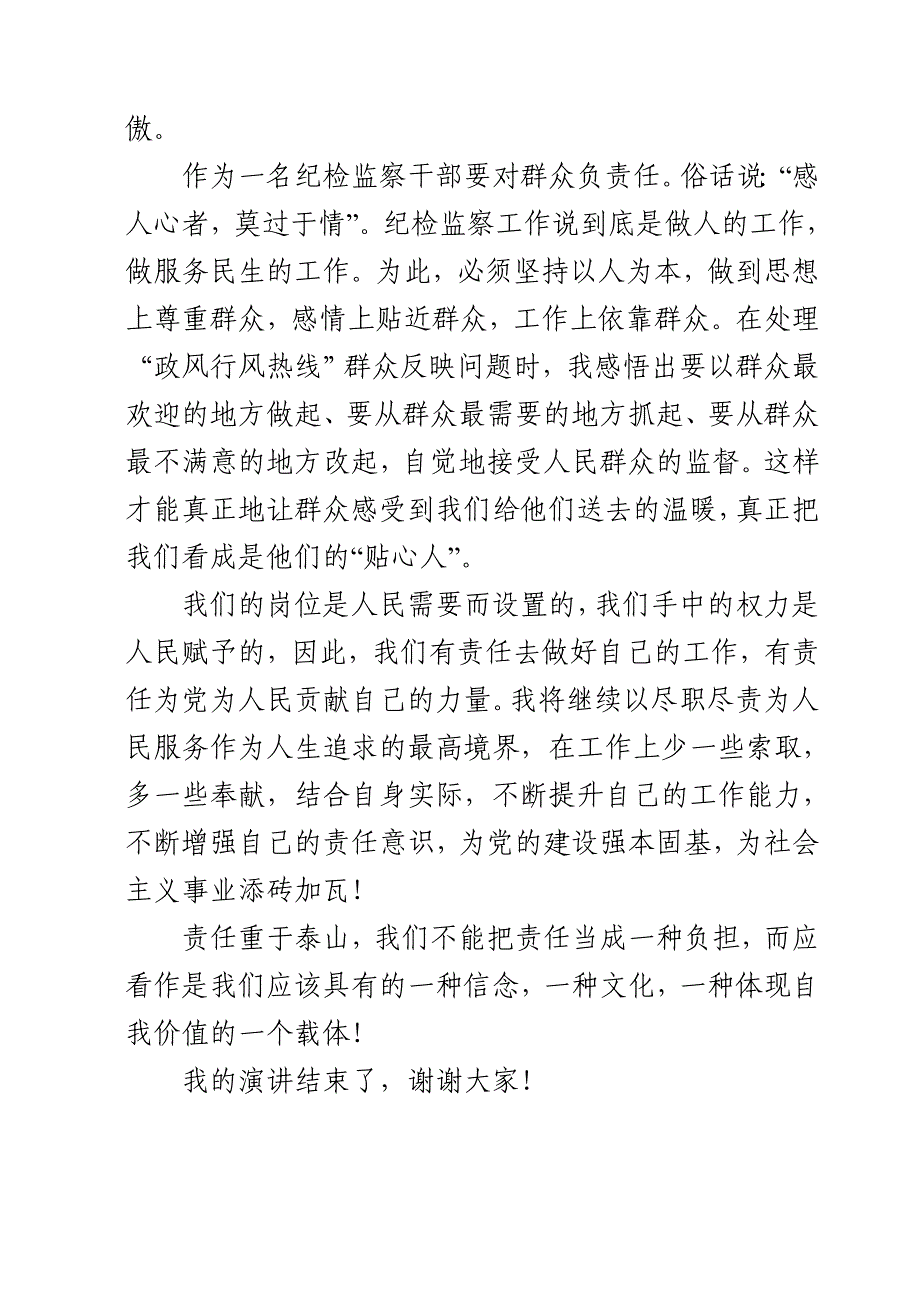 傲。
作为一名纪检监察干部要对群众负责任。俗话说：“感
人心者，莫过于情”。纪检监察工作说到底是做人的工作，
做服务民生的工作。为此，必须坚持以人为本，做到思想
上尊重群众，感情上贴近群众，工作上依靠群众。在处理
“政风行风热线”群众反映问题时，我感悟出要以群众最
欢迎的地方做起、要从群众最需要的地方抓起、要从群众
最不满意的地方改起，自觉地接受人民群众的监督。这样
才能真正地让群众感受到我们给他们送去的温暖，真正把
我们看成是他们的“贴心人”。
我们的岗位是人民需要而设置的，我们手中的权力是
人民赋予的，因此，我们有责任去做好自己的工作，有责
任为党为人民贡献自己的力量。我将继续以尽职尽责为人
民服务作为人生追求的最高境界，在工作上少一些索取，
多一些奉献，结合自身实际，不断提升自己的工作能力，
不断增强自己的责任意识，为党的建设强本固基，为社会
主义事业添砖加瓦！
责任重于泰山，我们不能把责任当成一种负担，而应
看作是我们应该具有的一种信念，一种文化，一种体现自
我价值的一个载体！
我的演讲结束了，谢谢大家！